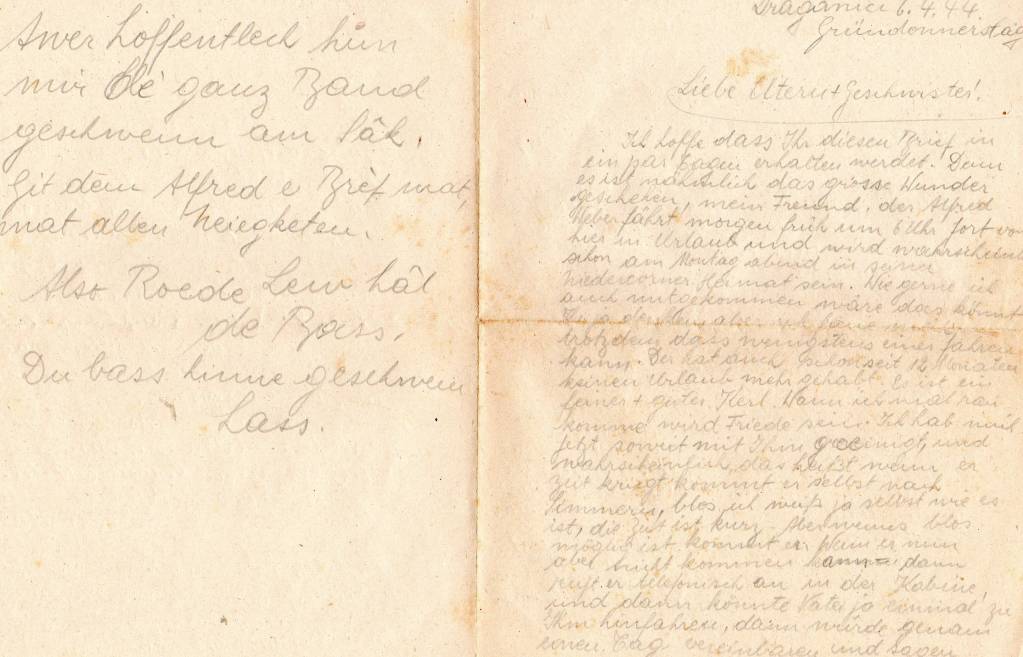 Awer hoffentlech hun
mir dé ganz Band
geschwenn am Sâk.
Git dem Alfred e Brèf mat,
mat allen Neiegketen.
Also Roede Lew hâl
de Bass.
Du bass hinne geschwenn
Lass.
Draganici 6.4.44.
Gründonnerstag
Liebe Eltern + Geschwister!
Ich hoffe dass Ihr diesen Brief in
ein par Tagen erhalten werdet. Denn
es ist nähmlich das grosse Wunder
geschehen, mein Freund, der Alfred
Weber fährt morgen früh um 6 Uhr fort von
hier in Urlaub und wird wahrscheinl
schon am Montag abend in seiner
Niedercorner Heimat sein. Wie gerne ich
auch mitgekommen wäre das könnt
Ihr ja denken, aber ich
trotzdem dass wenigstens einer fahren
kann. Der hat auch schon seit 12 Monaten
keinen Urlaub mehr gehabt. Es ist ein
feiner + guter Kerl. Wann
komme wird Friede sein. Ich hab mich
jetzt soweit mit Ihm geeinigt, und
wahrscheinlich, das heißt wenn er
Zeit kriegt kommt er selbst nach
Simmern, blos ich weiß ja selbst wie es
ist, die Zeit ist kurz. Aber wenns blos
möglich ist kommt er. Wenn er nun
aber nicht kommen kann = dann
ruft er telefonisch an in der Kabine,
und dann könnte Vater ja einmal zu
Ihm hinfahren, dann würde genau
einen Tag vereinbaren und sagen